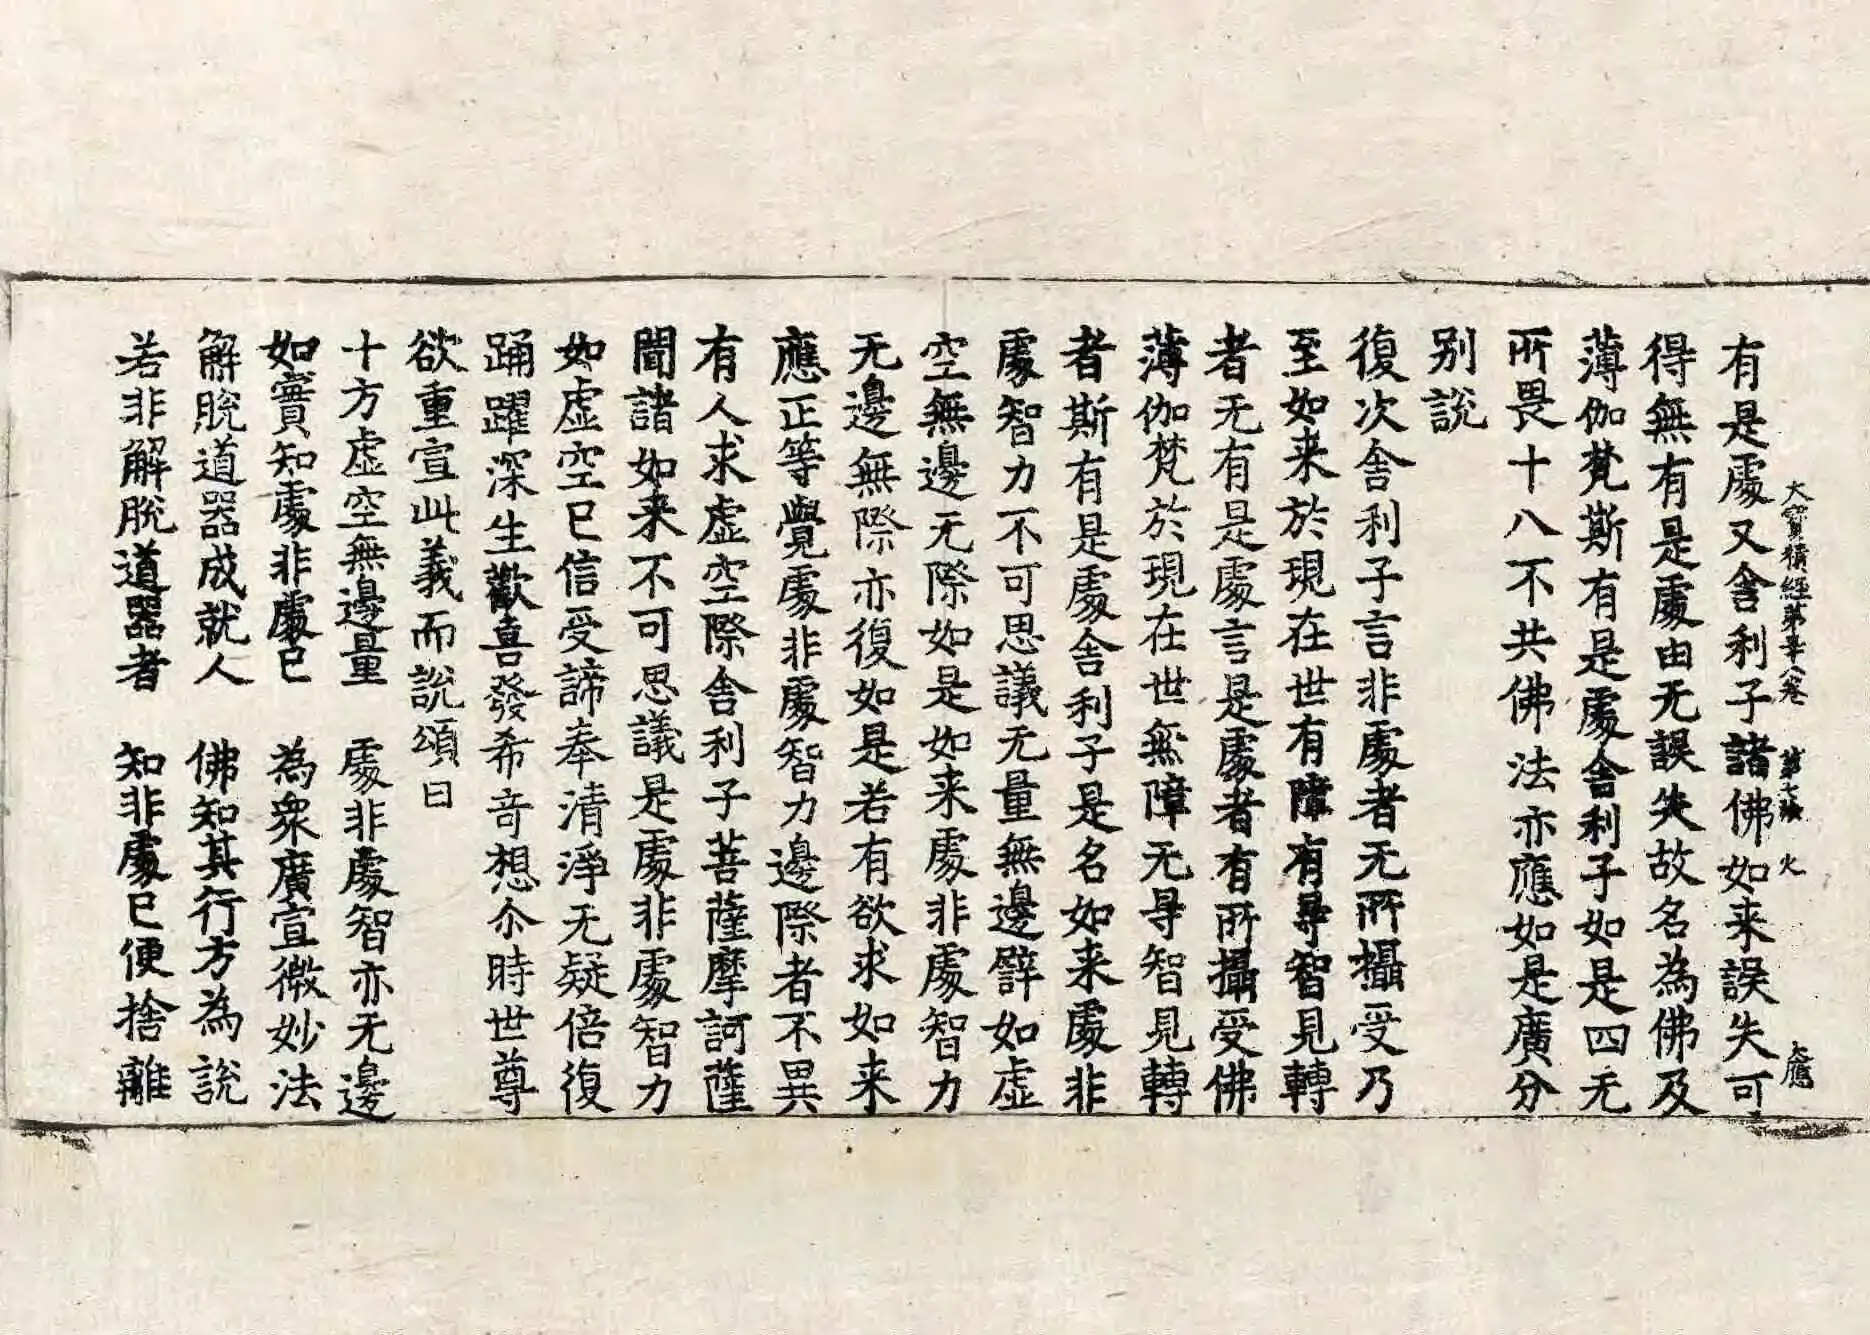 大寶積經第三十八卷 第七張 火 應
有是處又舎利子諸佛如来誤失可
得無有是處由无誤失故名為佛及
薄伽梵斯有是處舎利子如是四无
所畏十八不共佛法亦應如是廣分
别說
復次舎利子言非處者无所攝受乃
至如来於現在世有障有㝵智見轉
者无有是處言是處者有所攝受佛
薄伽梵於現在世無障无㝵智見轉
者斯有是處舎利子是名如来處非
處智力不可思議无量無邊譬如虚
空無邊无際如是如来處非處智力
无邊無際亦復如是若有欲求如来
應正等覺處非處智力邊際者不異
有人求虚空際舎利子菩薩摩訶薩
聞諸如来不可思議是處非處智力
如虚空已信受諦奉清淨无疑倍復
踊躍深生歡喜發希奇想尒時世尊
欲重宣此義而說頌曰
十方虚空無邊量 處非處智亦无邊
如實知處非處已 為衆廣宣微妙法
解脫道器成就人 佛知其行方為說
若非解脫道器者 知非處已便捨離